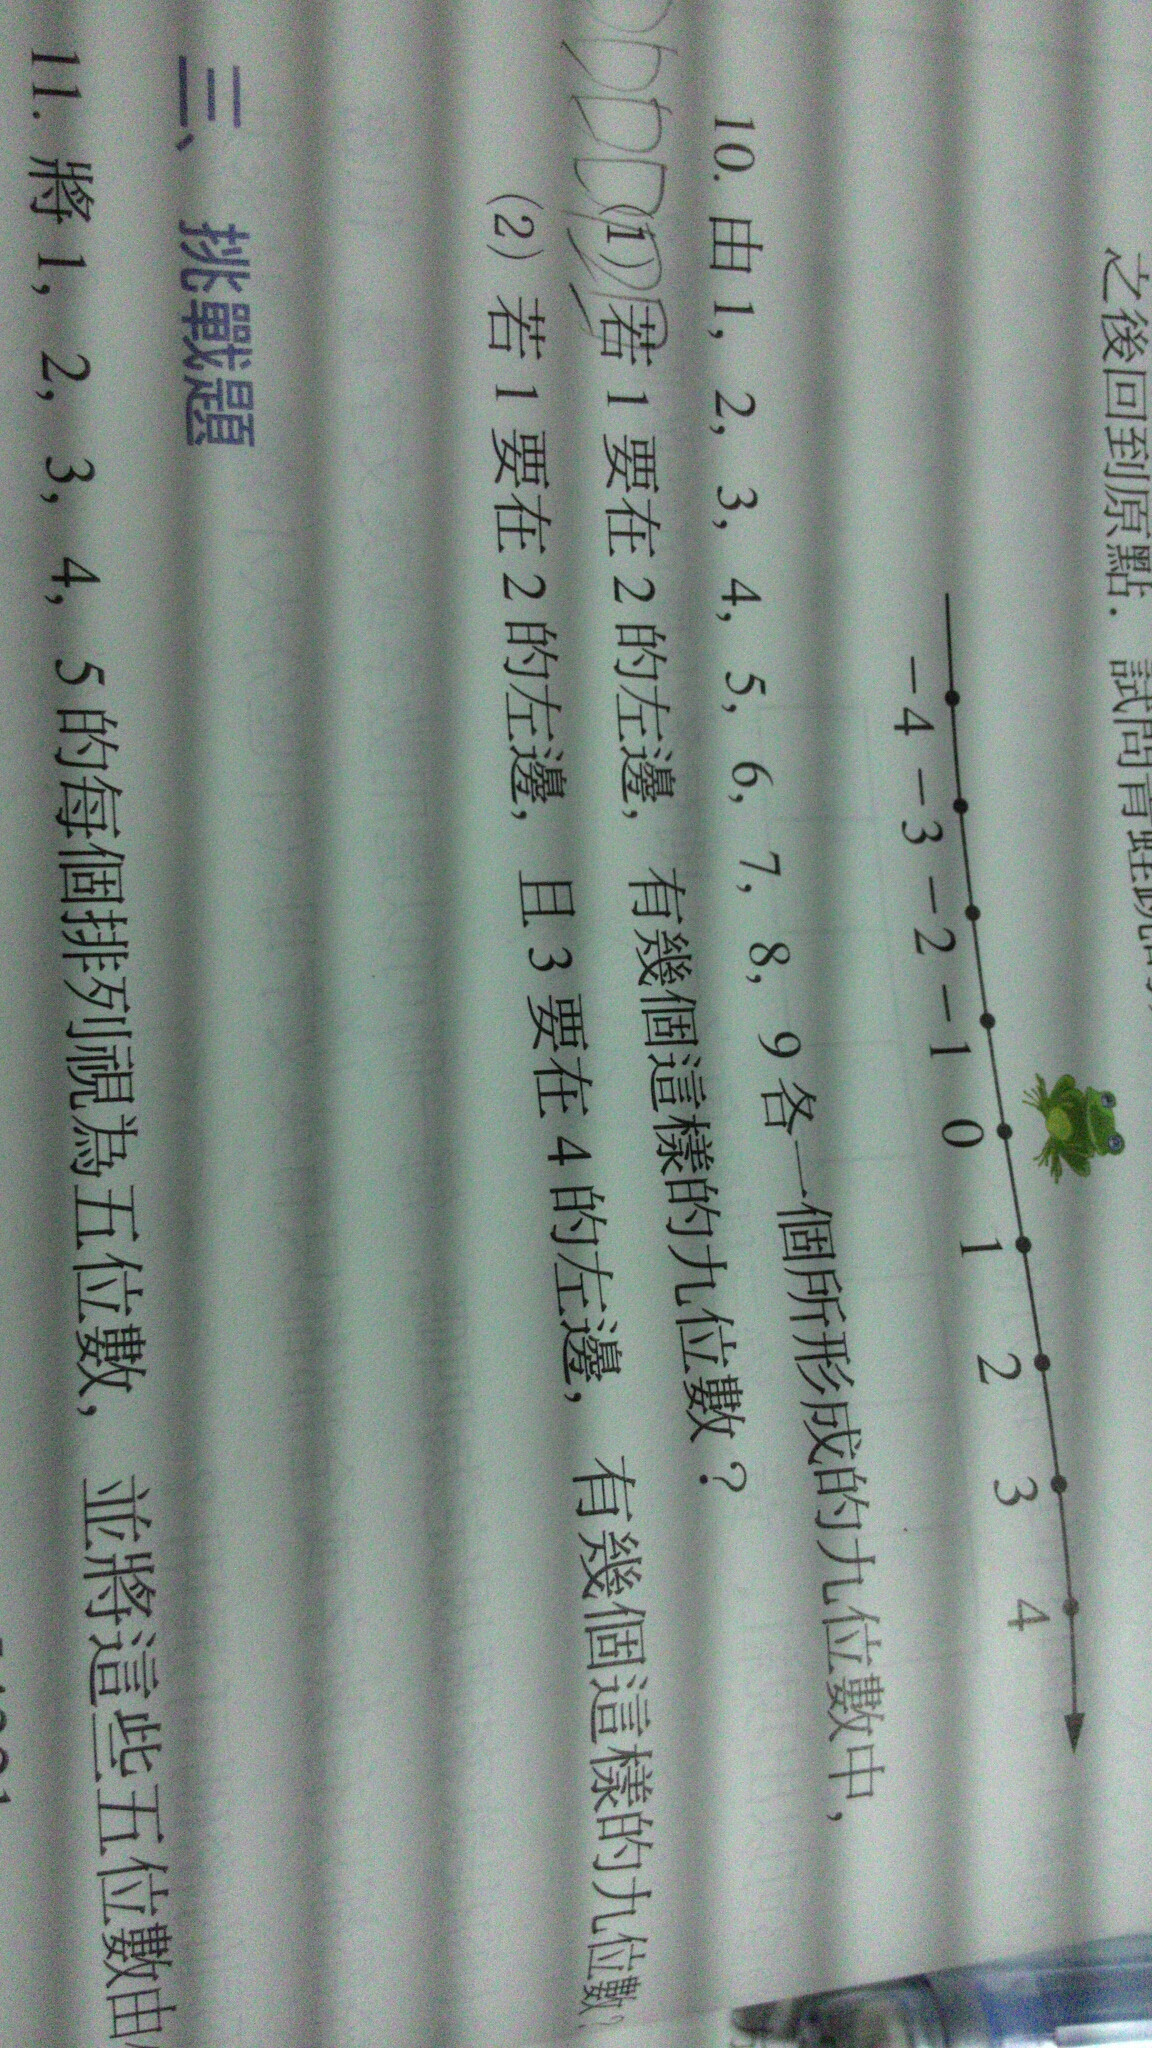 之後回到原點. 試問青蛙
-4 -3 -2 -1 0 1 2 3 4
10. 由 1, 2, 3, 4, 5, 6, 7, 8, 9 各一個所形成的九位數中,
(1) 若 1 要在 2 的左邊, 有幾個這樣的九位數?
(2) 若 1 要在 2 的左邊, 且 3 要在 4 的左邊, 有幾個這樣的九位數?
三、挑戰題
11. 將 1, 2, 3, 4, 5 的每個排列視為五位數, 並將這些五位數由